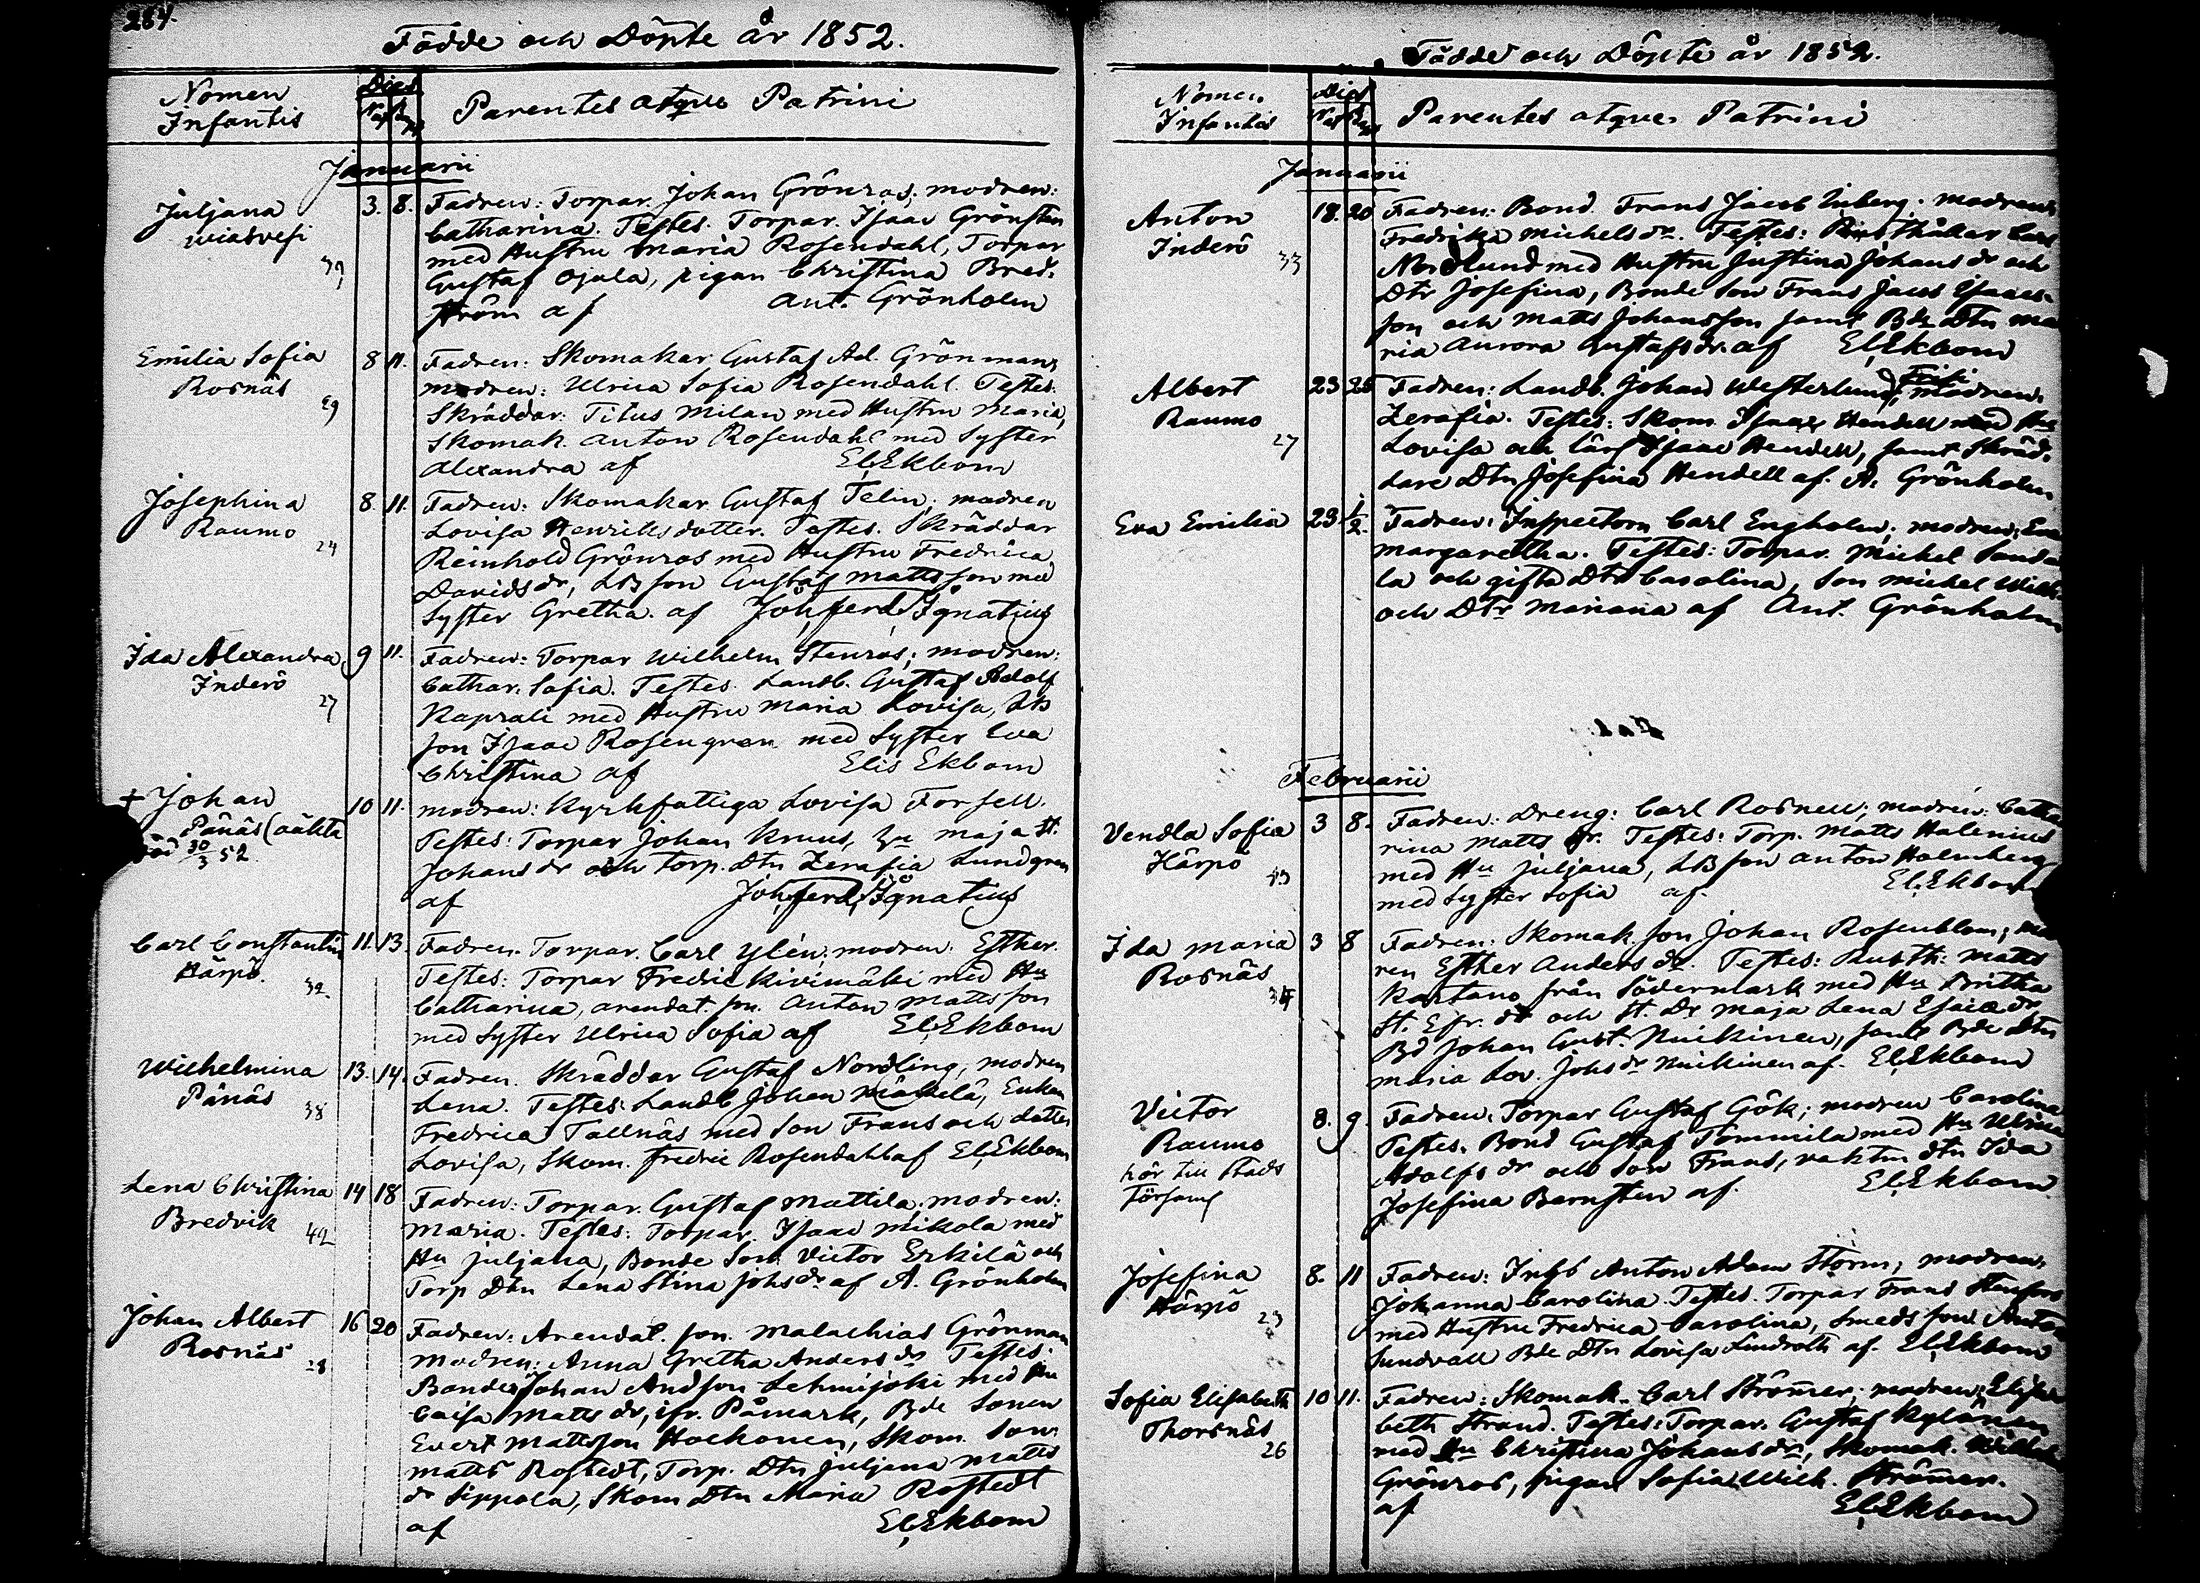 284.
Födde och Döpte år 1852.
Nomen Infantis
Dies
Nat Bapt
Parentes atque Patrini
Januarii
Juljana
Wiasvesi
39
3. 8.
Fadren: Torpar. Johan Grönros; modren:
Catharina. Testes. Torpar. Isaac Grönsten
med Hustru Maria Rosendahl, Torpar
Gustaf Ojala, pigan Christina Bred-
ström af Ant. Grönholm
Emilia Sofia
Rosnäs
29
8 11.
Fadren: Skomakar Gustaf Ad. Grönman,
modren: Ulrica Sofia Rosendahl. Testes.
Skräddar. Titus Milan med Hustru Maria,
Skomak. Anton Rosendahl med Syster
Alexandra af El. Ekbom
Josephina
Raumo
24
8. 11.
Fadren: Skomakar Gustaf Telin; modren
Lovisa Henriksdotter. Testes. Skräddar
Reinhold Grönros med Hustru Fredrica
Davids dr, LB son Gustaf Mattsson med
Syster Gretha. af Joh. ferd. Ignatius
Ida Alexandra
Inderö
27
9 11.
Fadren: Torpar Wilhelm Stenros; modren:
Cathar. Sofia. Testes. Landb. Gustaf Adolf
Kaprali med Hustru Maria Lovisa, Lb
son Isaac Rosengren med Syster Eva
Christina af Elis Ekbom
+ Johan
Pånäs (oäkta
död 30/3 52.
10 11.
modren: Kyrkfattiga Lovisa Forsell.
Testes: Torpar Johan Knuus, Maja St.
Johans dr och Torp. Dtn Zerafia Lundgren
af Joh. ferd. Ignatius
Carl Constantin
Härpö.
32
11. 13.
Fadren. Torpar. Carl Ylén; modren: Esther.
Testes: Torpar Fredric Kivimäki med Hu
Catharina, arendat. son. Anton Mattsson
med Syster Ulrica Sofia af El. Ekbom
Wilhelmina
Pånäs
38
13. 14.
Fadren. Skräddar Gustaf Nordling, modren
Lena. Testes. Landb Johan Mäkelä, Enkan
Fredrica Tallnäs med Son Frans och dotter
Lovisa, Skom. Fredric Rosendahl af El. Ekbom
Lena Christina
Bredvik
42
14 18
Fadren: Torpar. Gustaf Mattila, modren:
Maria. Testes: Torpar. Isaac Mikola med
Hu Juljana, Bonde Son Victor Erkilä och
Torp Dtn Lena Stina Johs dr af A. Grönholm
Johan Albert
Rosnäs
28
16 20
Fadren: Arendat. son. Malachias Grönman
modren: Anna Gretha Anders dr Testes.
Bonden Johan Andsson Lehmijoki med Hu
Caisa Matts dr, ifr. Påmark, Bde Sonen
Evert Mattsson Hockonen, Skom. Son
Matts Rostedt, Torp. Dtn Juljana Matts
dr Sippola, Skom Dtn Maria Rostedt
af El. Ekbom
Födde och Döpte år 1852.
Nomen Infantis
Dies
Nat Bapt
Parentes atque Patrini
Januarii
Anton
Inderö
33
18. 20
Fadren: Bond. Frans Jacob Inberg. modren
Fredrika Michels dr. Testes: Rusthållar Carl
Nordlund med Hustru Justina Johans dr och
Dtr Josefina, Bonde Son Frans Jacob Isaacs-
son och Matts Johansson samt Bde Dtn Ma
ria Aurora Gustafs dr af El. Ekbom
Albert
Raumo
27
23 25
Fadren: Landb. Johan Westerlund; modren
Zerafia. Testes: Skom Isaac Hendell med Hu
Lovisa och lärs Isaac Hendell, samt Skräd-
dare Dtn Josefina Hendell af. A. Grönholm
Eva Emilia
23. 1/2.
Fadren: Inspectorn Carl Engholm; modren: Eva
Margaretha. Testes: Torpar. Michel
la och gifta Dtr Carolina, Son Michel Wilh
och Dtr Mariana af Ant. Grönholm
Februarii
Vendla Sofia
Härpö
3 8.
Fadren: Dreng: Carl Rosnell; modren: Catha
rina Matts dr. Testes: Torp. Matts Halenius
med Hu Juljana, LB son Anton Holmberg
med Syster Sofia af. El. Ekbom
Ida Maria
Rosnäs
3 8
Fadren: Skomak. son Johan Rosenblom; mo
ren Esther Anders dr. Testes: Rusth: Matts
Kartano från Södermark med Hu Britha
St. Efr. dr och St. Dr Maja Lena Esaiæ dr
Bd Johan Gust. Nuikinen, samt Bde Dtn
Maria Lov. Johs dr Nuikinen af. El. Ekbom
Victor
Raumo
hör till Stads
Församl
8. 9.
Fadren: Torpar Gustaf Gök; modren Carolina
Testes. Bond Gustaf Tommila med Hu Ulrica
Adolfs dr och Son Frans, vaktm dtn Ida
Josefina Bernsten af. El. Ekbom
Josefina
Härpö
23
8. 11
Fadren: Inhs Anton Adam Storm; modren:
Johanna Carolina. Testes. Torpar Frans Stenfors
med Hustru Fredrica Carolina, Smeds son Anton
Sundvall Bde Dtn Lovisa Lindroth af. El. Ekbom
Sofia Elisabeth
Thorsnäs
26
10 11.
Fadren: Skomak. Carl Strömer; modren; Elisa
beth Strand. Testes: Torpar. Gustaf Kylänen
med Hu Christina Johans dr, Skomak. Wilhelm
Grönros, pigan Sofia Wilh. Strömer.
af El. Ekbom